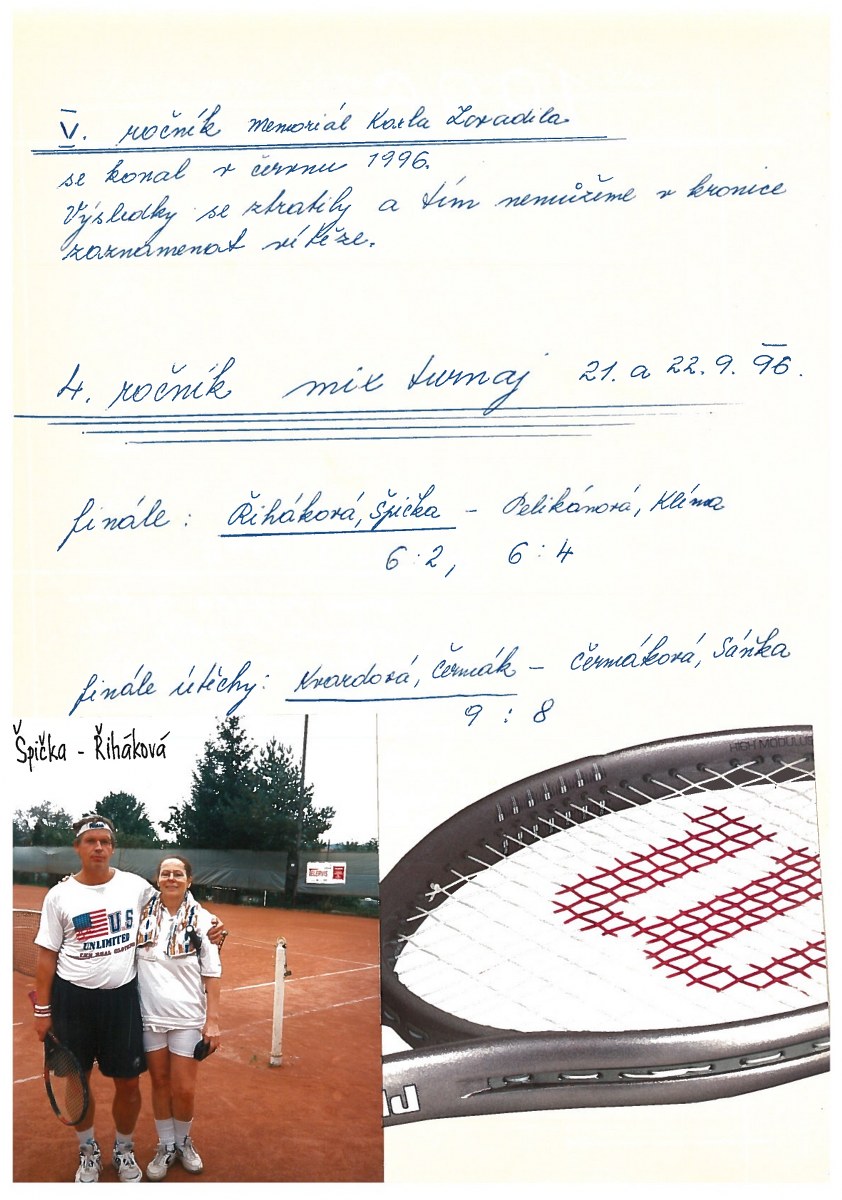 V. ročník Memoriál Karla Zavadila
se konal v červnu 1996.
Výsledky se ztratily a tím nemůžeme v kronice
zaznamenat vítěze.
4. ročník mix turnaj 21. a 22. 9. 96.
finále : Řiháková, Špička – Pelikánová, Klíma
6 : 2, 6 : 4
finále útěchy: Kvardová, Čermák – Čermáková, Sáňka
9 : 8
Špička - Řiháková
HIGH MODULUS
U.S
UNLIMITED
THE REAL CLOTHING